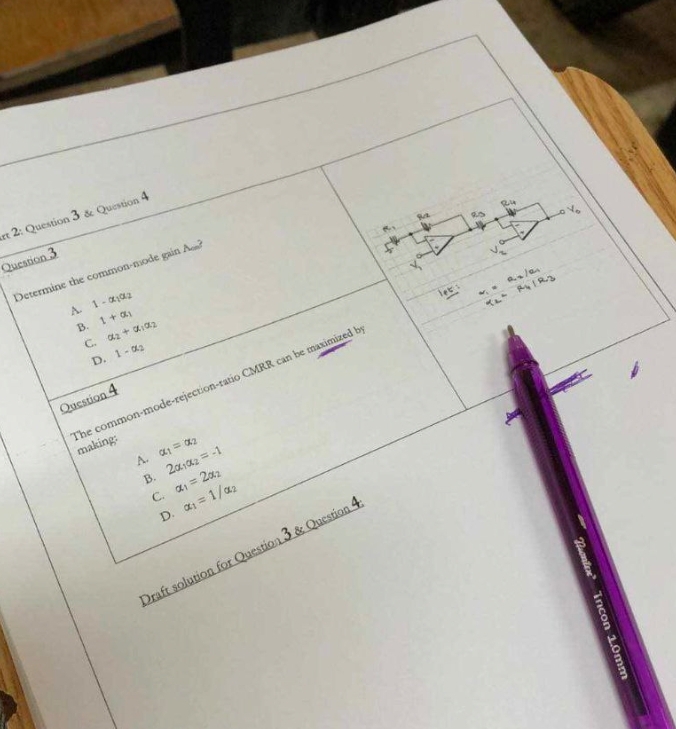 rt 2: Question 3 & Question 4
Question 3
Determine the common-mode gain Acm?
A. 1 - α1α2
B. 1 + α1
C. α2 + α1α2
D. 1 - α2
R1
R2
R3
R4
V1
V2
Vo
let:
α1 = R2/R1
α2 = R4/R3
Question 4
The common-mode-rejection-ratio CMRR can be maximized by
making:
A. α1 = α2
B. 2α1α2 = -1
C. α1 = 2α2
D. α1 = 1/α2
Draft solution for Question 3 & Question 4:
Tricon 1.0mm